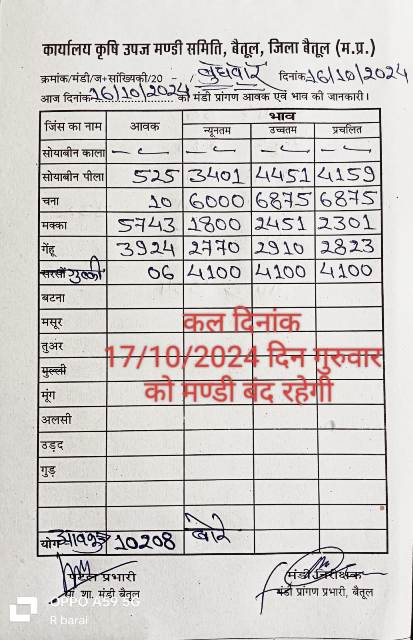 कार्यालय कृषि उपज मण्डी समिति, बैतूल, जिला बैतूल (म.प्र.)
क्रमांक/मंडी/ज+सांख्यिकी/20 - / बुधवार दिनांक 16/10/2024
आज दिनांक 16/10/2024 को मंडी प्रांगण आवक एवं भाव की जानकारी।
जिंस का नाम आवक भाव
न्यूनतम उच्चतम प्रचलित
सोयाबीन काला
सोयाबीन पीला 525 3401 4451 4159
चना 10 6000 6875 6875
मक्का 5743 1800 2451 2301
गेंहू 3924 2770 2910 2823
सरसों गुल्ली 06 4100 4100 4100
बटना
मसूर
तुअर
मुल्ली
मूंग
अलसी
उड़द
गुड़
कल दिनांक
17/10/2024 दिन गुरुवार
को मण्डी बंद रहेगी
योग आवक 10208 बोरे
पटल प्रभारी मंडी निरीक्षक
मंडी बैतूल मंडी प्रांगण प्रभारी, बैतूल
OPPO A59 5G
R barai